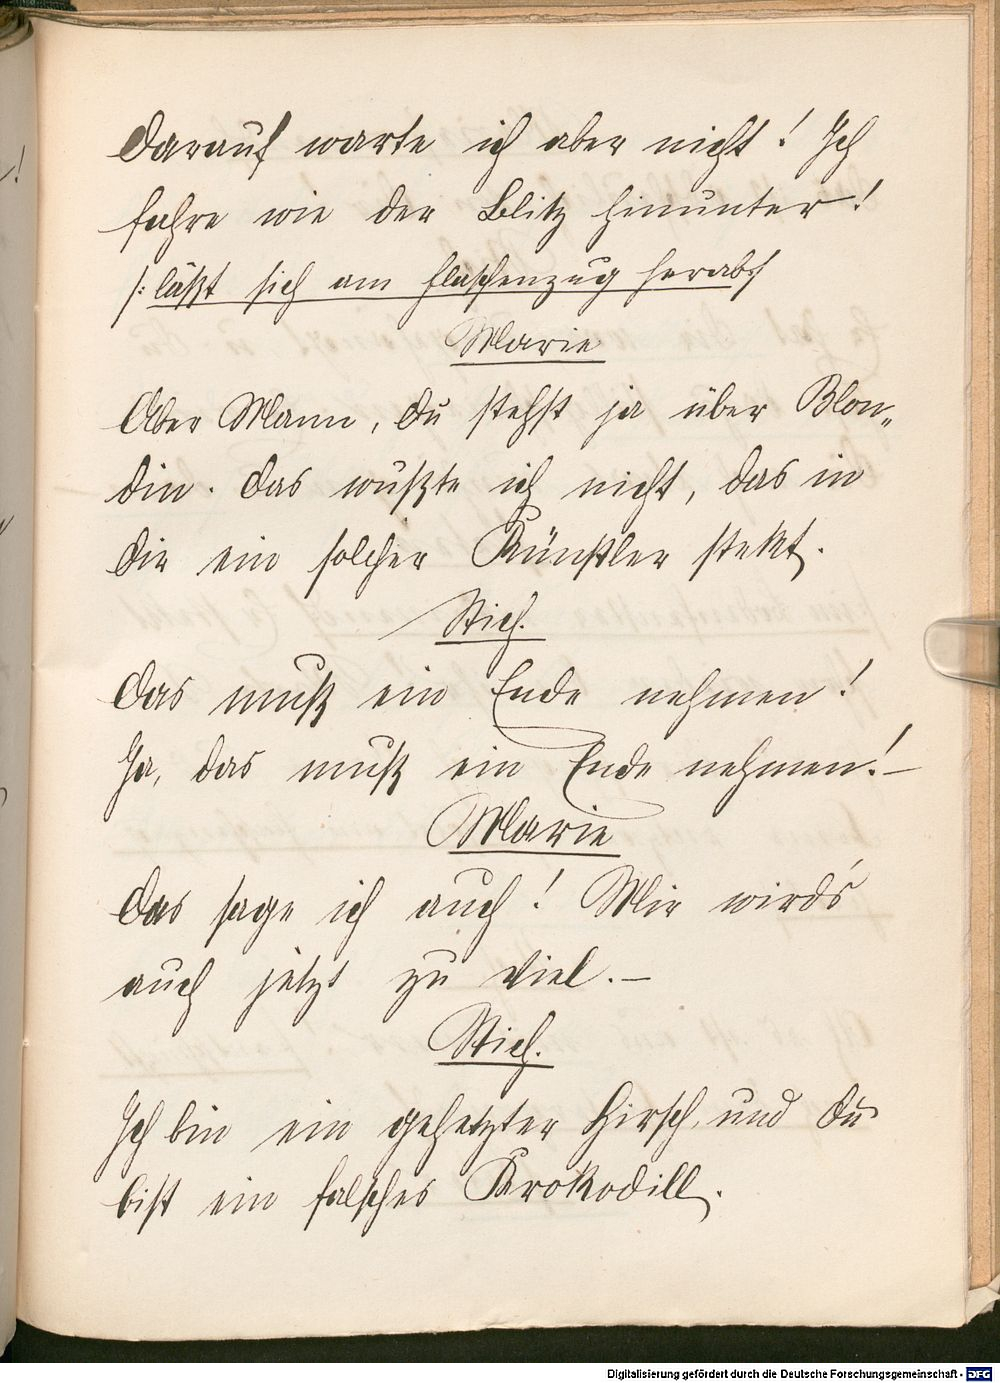 Darauf warte ich aber nicht! Ich
fahre wie der Blitz hinunter!
/: läßt sich am Flaschenzug herab :/
Marie
Aber Mann, du stehst ja über Blon„
din. Das wußte ich nicht, das in
dir ein solcher Künstler stekt.
Stich.
Das muß ein Ende nehmen!
Ja, das muß ein Ende nehmen! –
Marie
Das sage ich auch! Mir wird's
auch jetzt zu viel. –
Stich.
Ich bin ein gehetzter Hirsch, und du
bist ein falsches Krokodill.
Digitalisierung gefördert durch die Deutsche Forschungsgemeinschaft - DFG